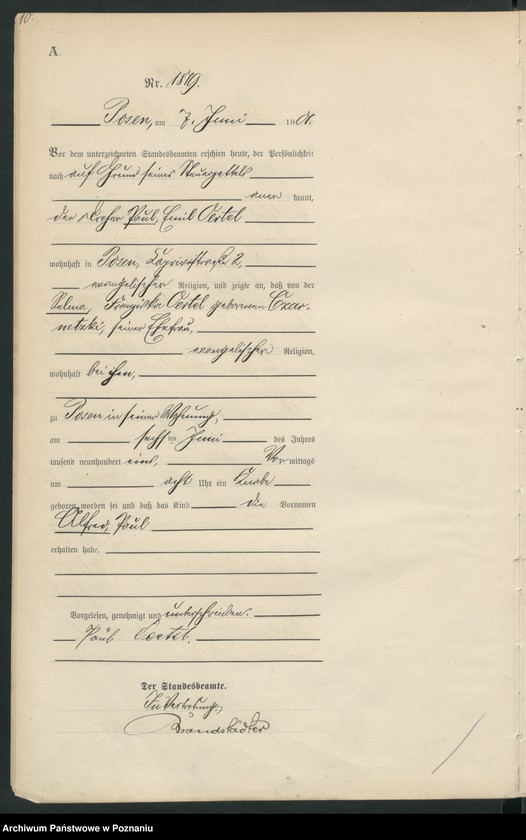 10.
A.
Nr. 1819.
Posen, am 7. Juni 1901.
Vor dem unterzeichneten Standesbeamten erschien heute, der Persönlichkeit
nach auf Grund seines Steuerzettels
aner kannt,
der Dreher Paul, Emil Oertel
wohnhaft in Posen, Caprivistraße 2,
evangelischer Religion, und zeigte an, daß von der
Selma, Franziska Oertel geborenen Czar-
netzki, seiner Ehefrau,
evangelischer Religion,
wohnhaft bei ihm,
zu Posen in seiner Wohnung,
am sechsten Juni des Jahres
tausend neunhundert eins, Vor mittags
um acht Uhr ein Knabe
geboren worden sei und daß das Kind die Vornamen
Alfred, Paul
erhalten habe.
Vorgelesen, genehmigt und unterschrieben.
Paul Oertel.
Der Standesbeamte.
In Vertretung,
Brandstädter
Archiwum Państwowe w Poznaniu